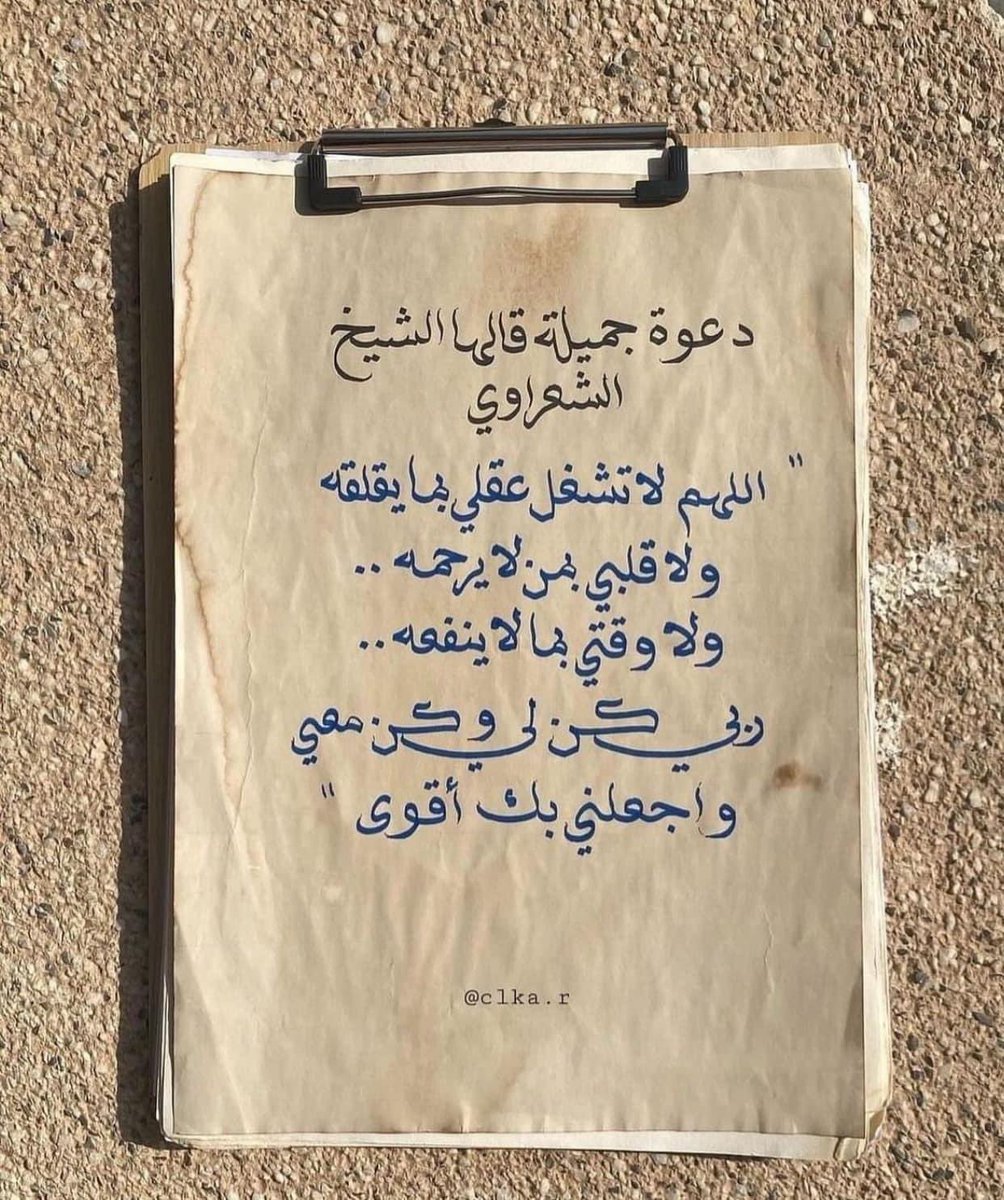 دعوة جميلة قالها الشيخ
الشعراوي
" اللهم لا تشغل عقلي بما يقلقه
ولا قلبي بمن لا يرحمه ..
ولا وقتي بما لا ينفعه ..
ربي كن لي وكن معي
واجعلني بك أقوى "
@clka.r